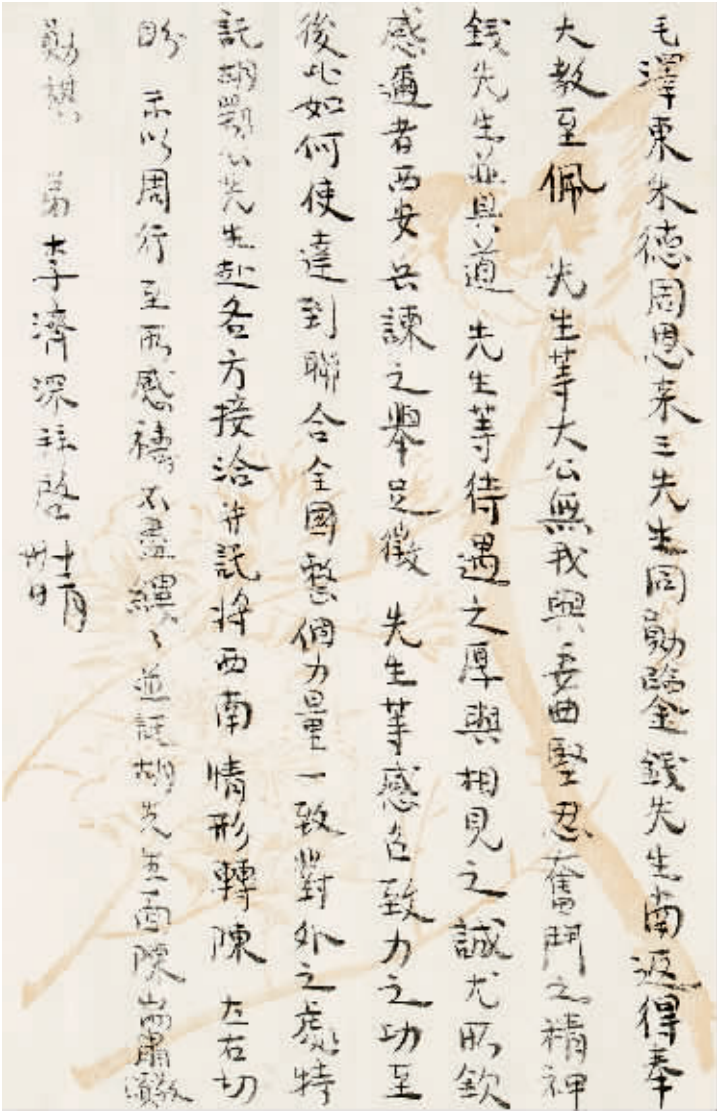 毛澤東朱德周恩來三先生同勛臨金錢先生南返得奉
大教至佩 先生等大公無我與委曲堅忍奮鬥之精神
錢先生並具道 先生等待遇之厚與相見之誠尤所欽
感邇者西安兵諫之舉足徵 先生等感召致力之功至
後此如何使達到聯合全國整個力量一致對外之處特
託胡鄂公先生赴各方接洽并託將西南情形轉陳 左右切
盼 示以周行至所感禱不盡縷縷並託胡先生面陳耑肅順敬
勛祺 弟李濟深拜啓 十二月卅日